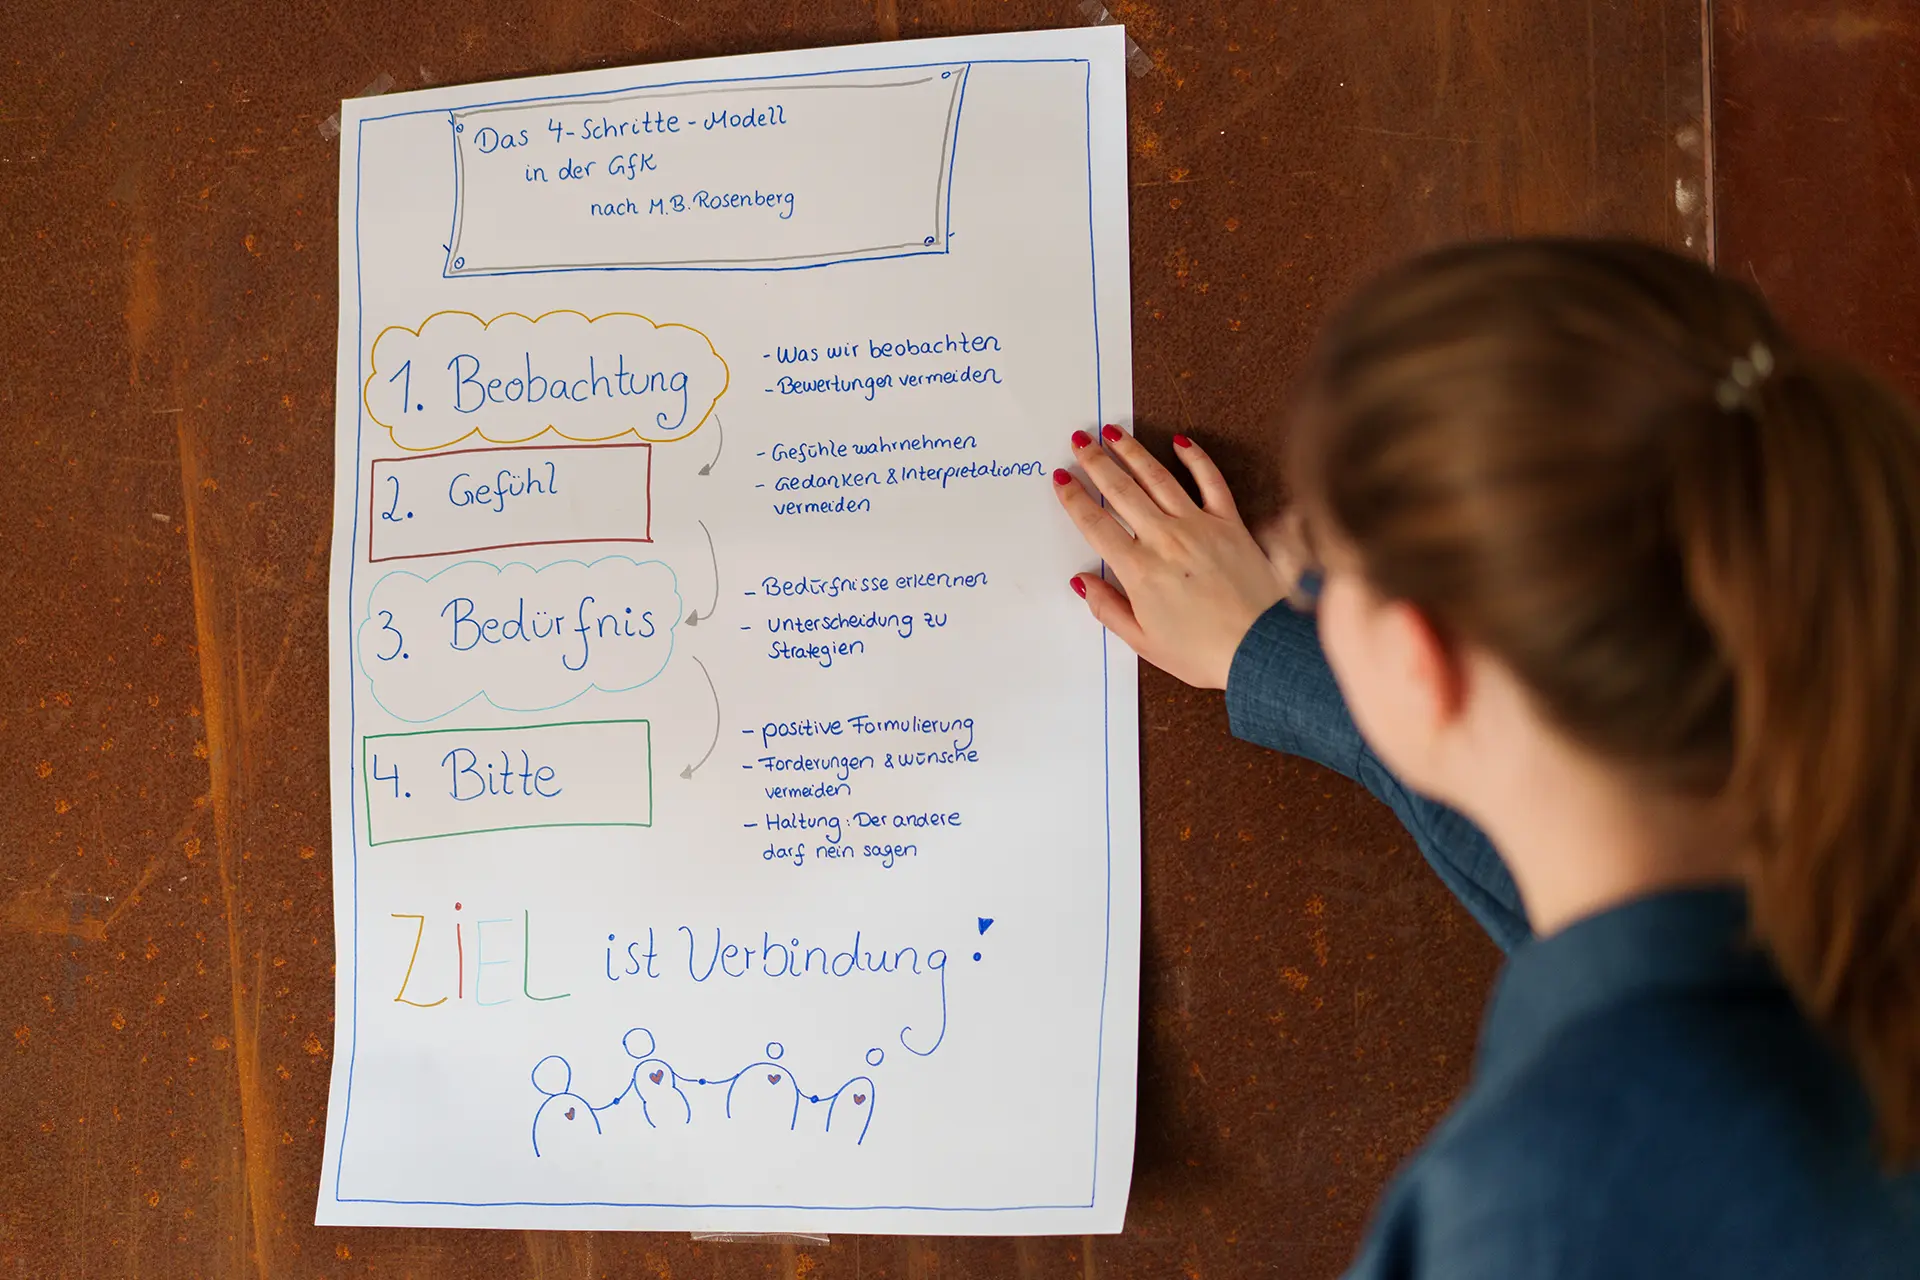 Das 4-Schritte-Modell
in der GfK
nach M.B. Rosenberg
1. Beobachtung
- Was wir beobachten
- Bewertungen vermeiden
2. Gefühl
- Gefühle wahrnehmen
- Gedanken & Interpretationen
vermeiden
3. Bedürfnis
- Bedürfnisse erkennen
- Unterscheidung zu
Strategien
4. Bitte
- positive Formulierung
- Forderungen & Wünsche
vermeiden
- Haltung: Der andere
darf nein sagen
ZiEL ist Verbindung!